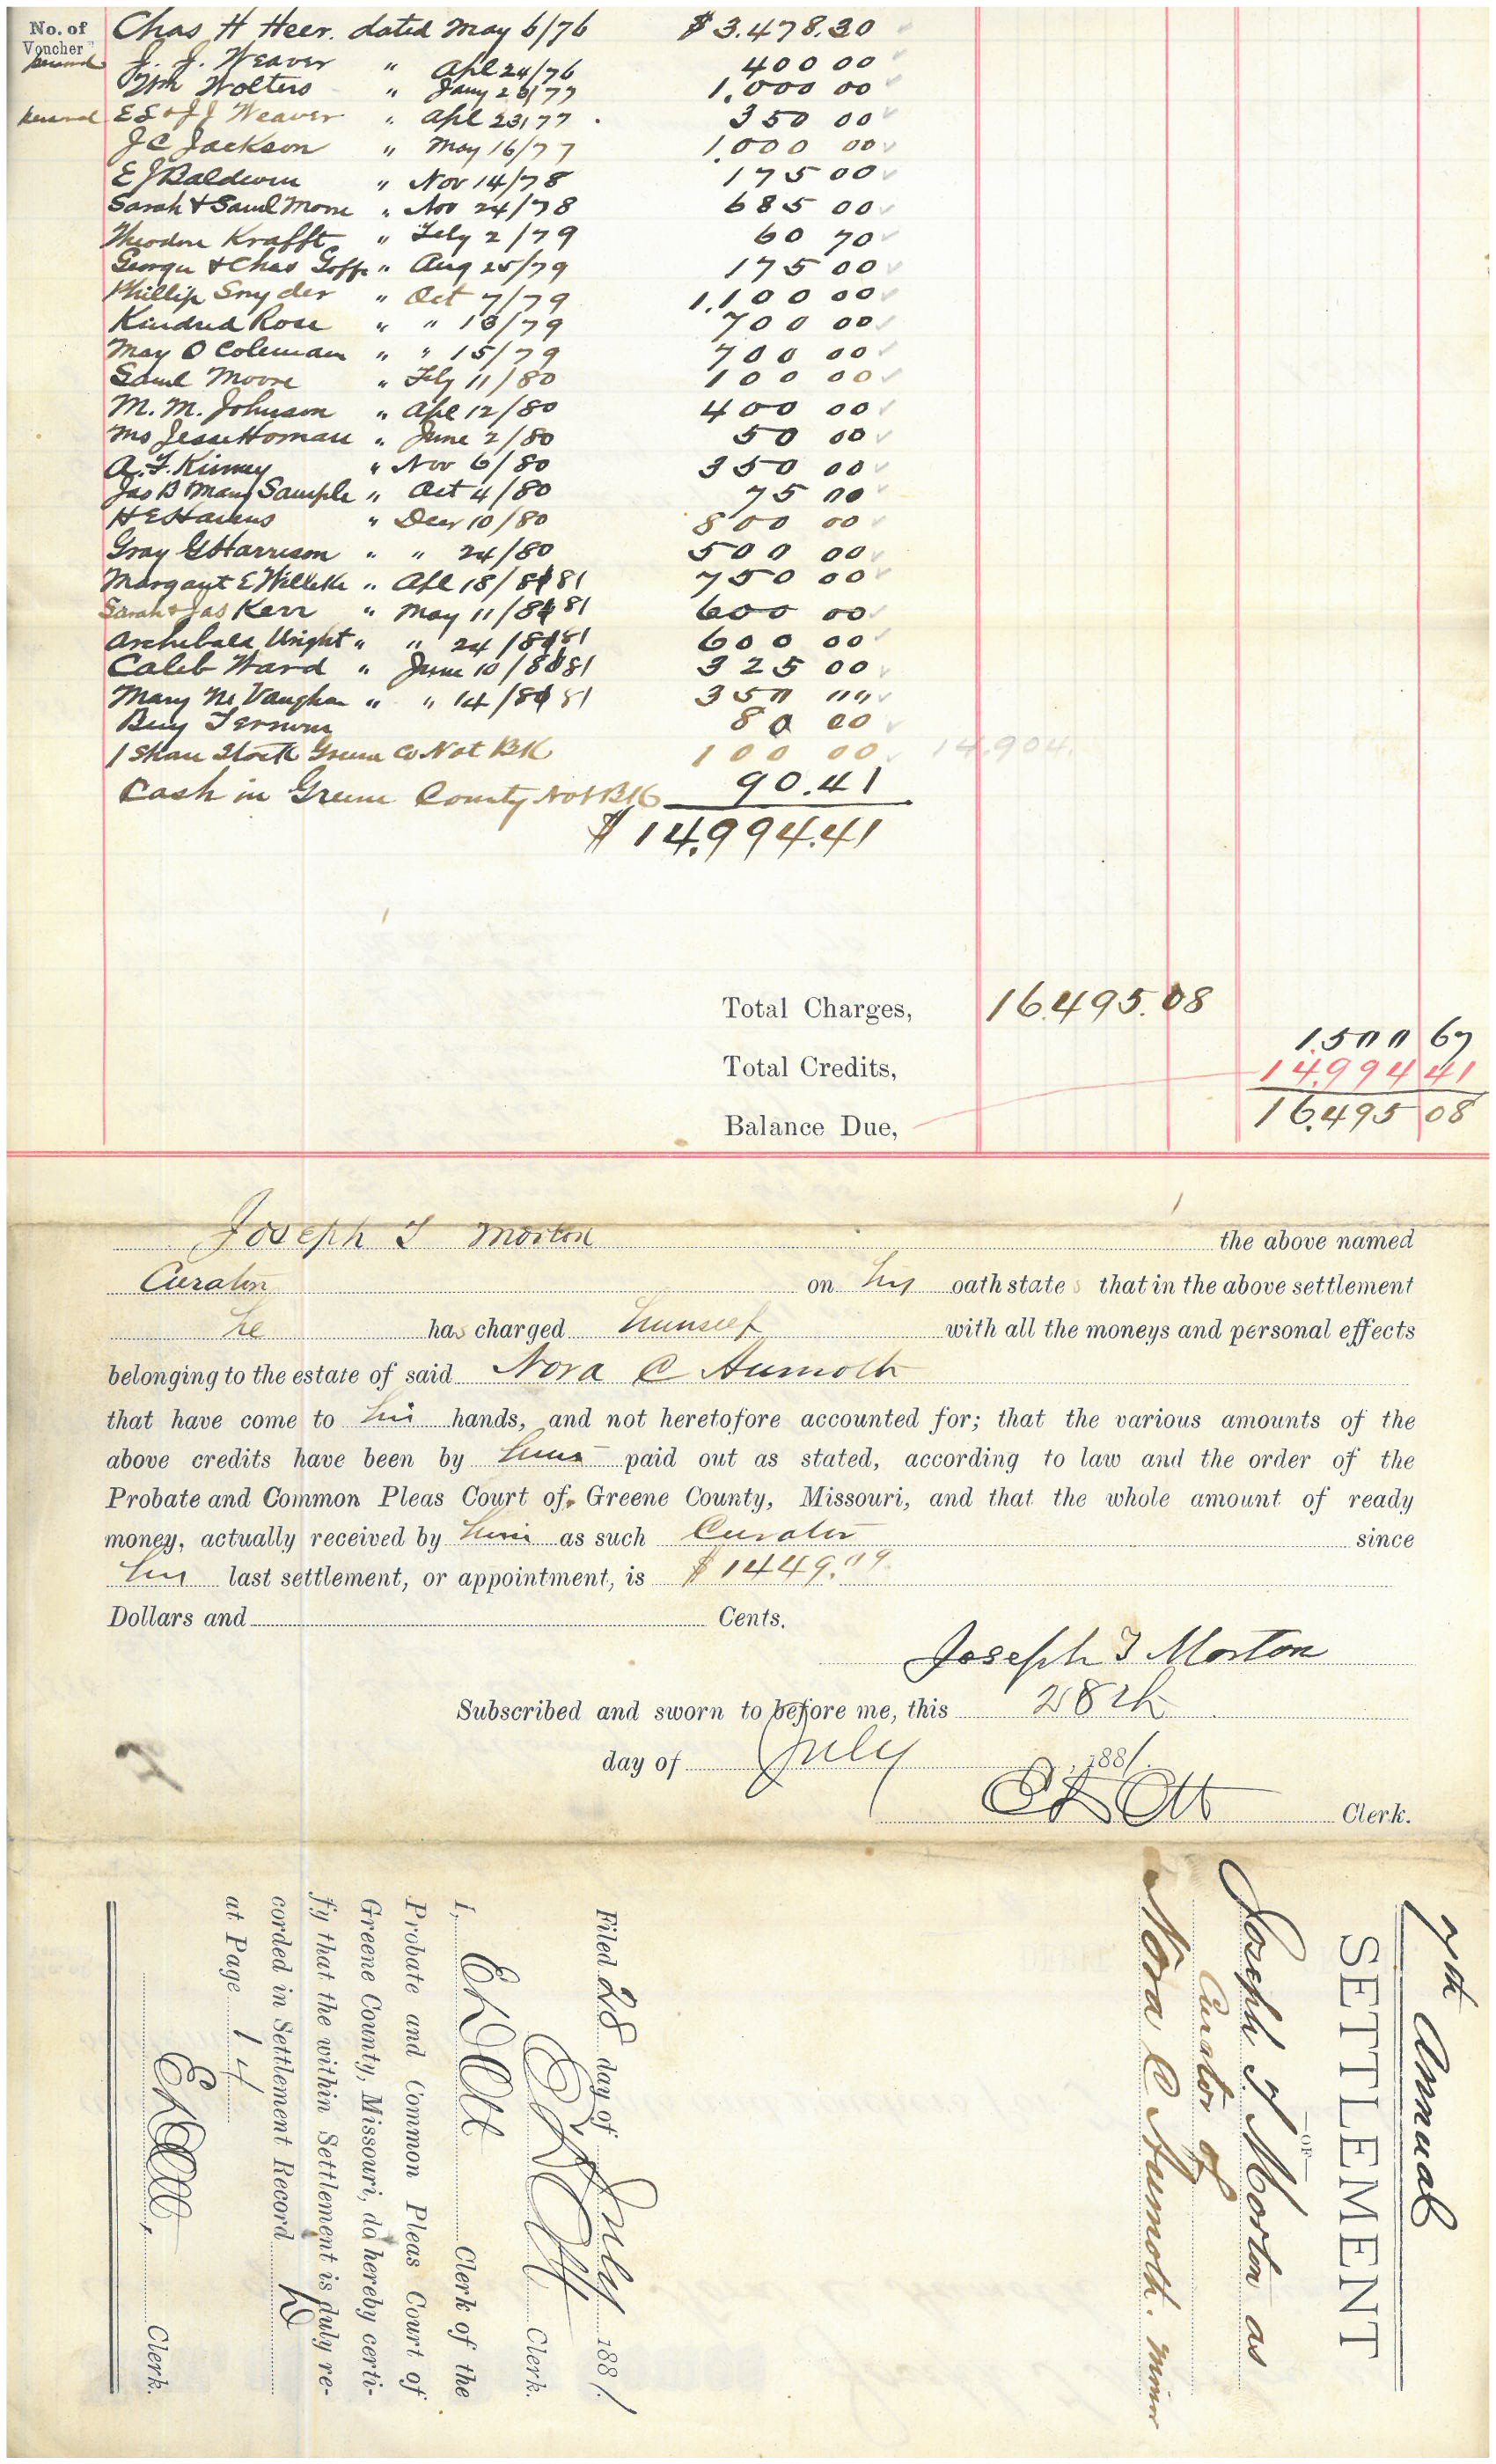 No. of
Voucher
Chas H Heer. dated May 6/76 $3.478.30
J. J. Weaver " Apl 24/76 400 00
Wm Wolters " Jany 23/77 1,000 00
E E & J J Weaver " Apl 23/77 . 350 00
J C Jackson " May 16/77 1,000 00
E J Baldwin " Nov 14/78 175 00
Sarah & Saml Moore " Nov 24/78 685 00
Theodore Krafft " Feby 2/79 60 70
George & Chas Goffe " Aug 25/79 175 00
Phillip Snyder " Oct 7/79 1,100 00
Kindred Rose " " 13/79 700 00
May O Coleman " " 15/79 700 00
Saml Moore " Feby 11/80 100 00
M. M. Johnson " Apl 12/80 400 00
Mo Jesse Homan " June 2/80 50 00
A. F. Kinney " Nov 6/80 350 00
Jas B Mary Sample " Oct 4/80 75 00
H E Havens " Decr 10/80 800 00
Gray G Harrison " " 24/80 500 00
Margaret E " Apl 18/81 750 00
Sarah & Jas Kerr " May 11/81 600 00
Archibald Wright " " 24/81 600 00
Caleb Ward " June 10/81 325 00
Mary M Vaughan " " 14/81 350 00
Benj Vernum 80 00
1 Share Stock Greene Co Nat BK 100 00 14,904.
Cash in Greene County Nat BK 90.41
$14,994.41
Total Charges, 16,495.08
1,500 67
Total Credits, 14,994 41
Balance Due, 16,495 08
Joseph T Morton the above named
Curator on his oath states that in the above settlement
he has charged himself with all the moneys and personal effects
belonging to the estate of said Nora C Aumoth
that have come to his hands, and not heretofore accounted for; that the various amounts of the
above credits have been by him paid out as stated, according to law and the order of the
Probate and Common Pleas Court of Greene County, Missouri, and that the whole amount of ready
money, actually received by him as such Curator since
his last settlement, or appointment, is $1449.09
Dollars and Cents.
Joseph T Morton
Subscribed and sworn to before me, this 28th
day of July , 1881.
E D Ott Clerk.
7th Annual
SETTLEMENT
—OF—
Joseph T Morton as
Curator of
Nora C Aumoth. minor
Filed 28 day of July 1881.
E D Ott Clerk.
I, E D Ott Clerk of the
Probate and Common Pleas Court of
Greene County, Missouri, do hereby certi-
fy that the within Settlement is duly re-
corded in Settlement Record
at Page 14
E D Ott, Clerk.